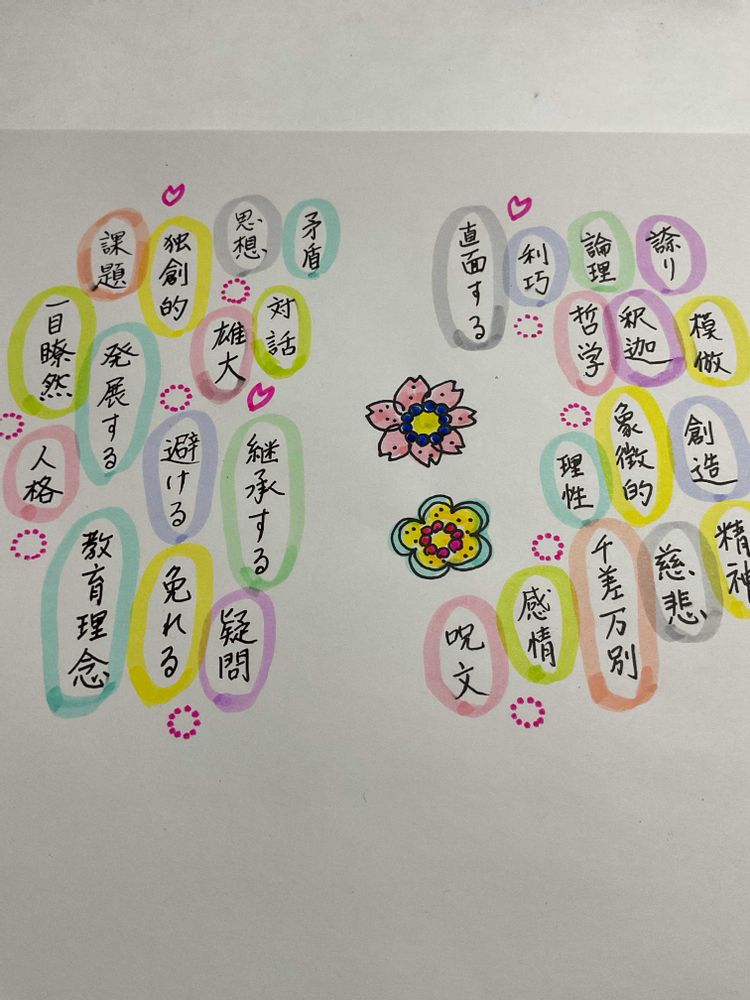 誇り
論理
利巧
直面する
模倣
釈迦
哲学
創造
象徴的
理性
精神
慈悲
千差万別
感情
呪文
矛盾
思想
独創的
課題
対話
雄大
発展する
一目瞭然
継承する
避ける
人格
疑問
免れる
教育理念